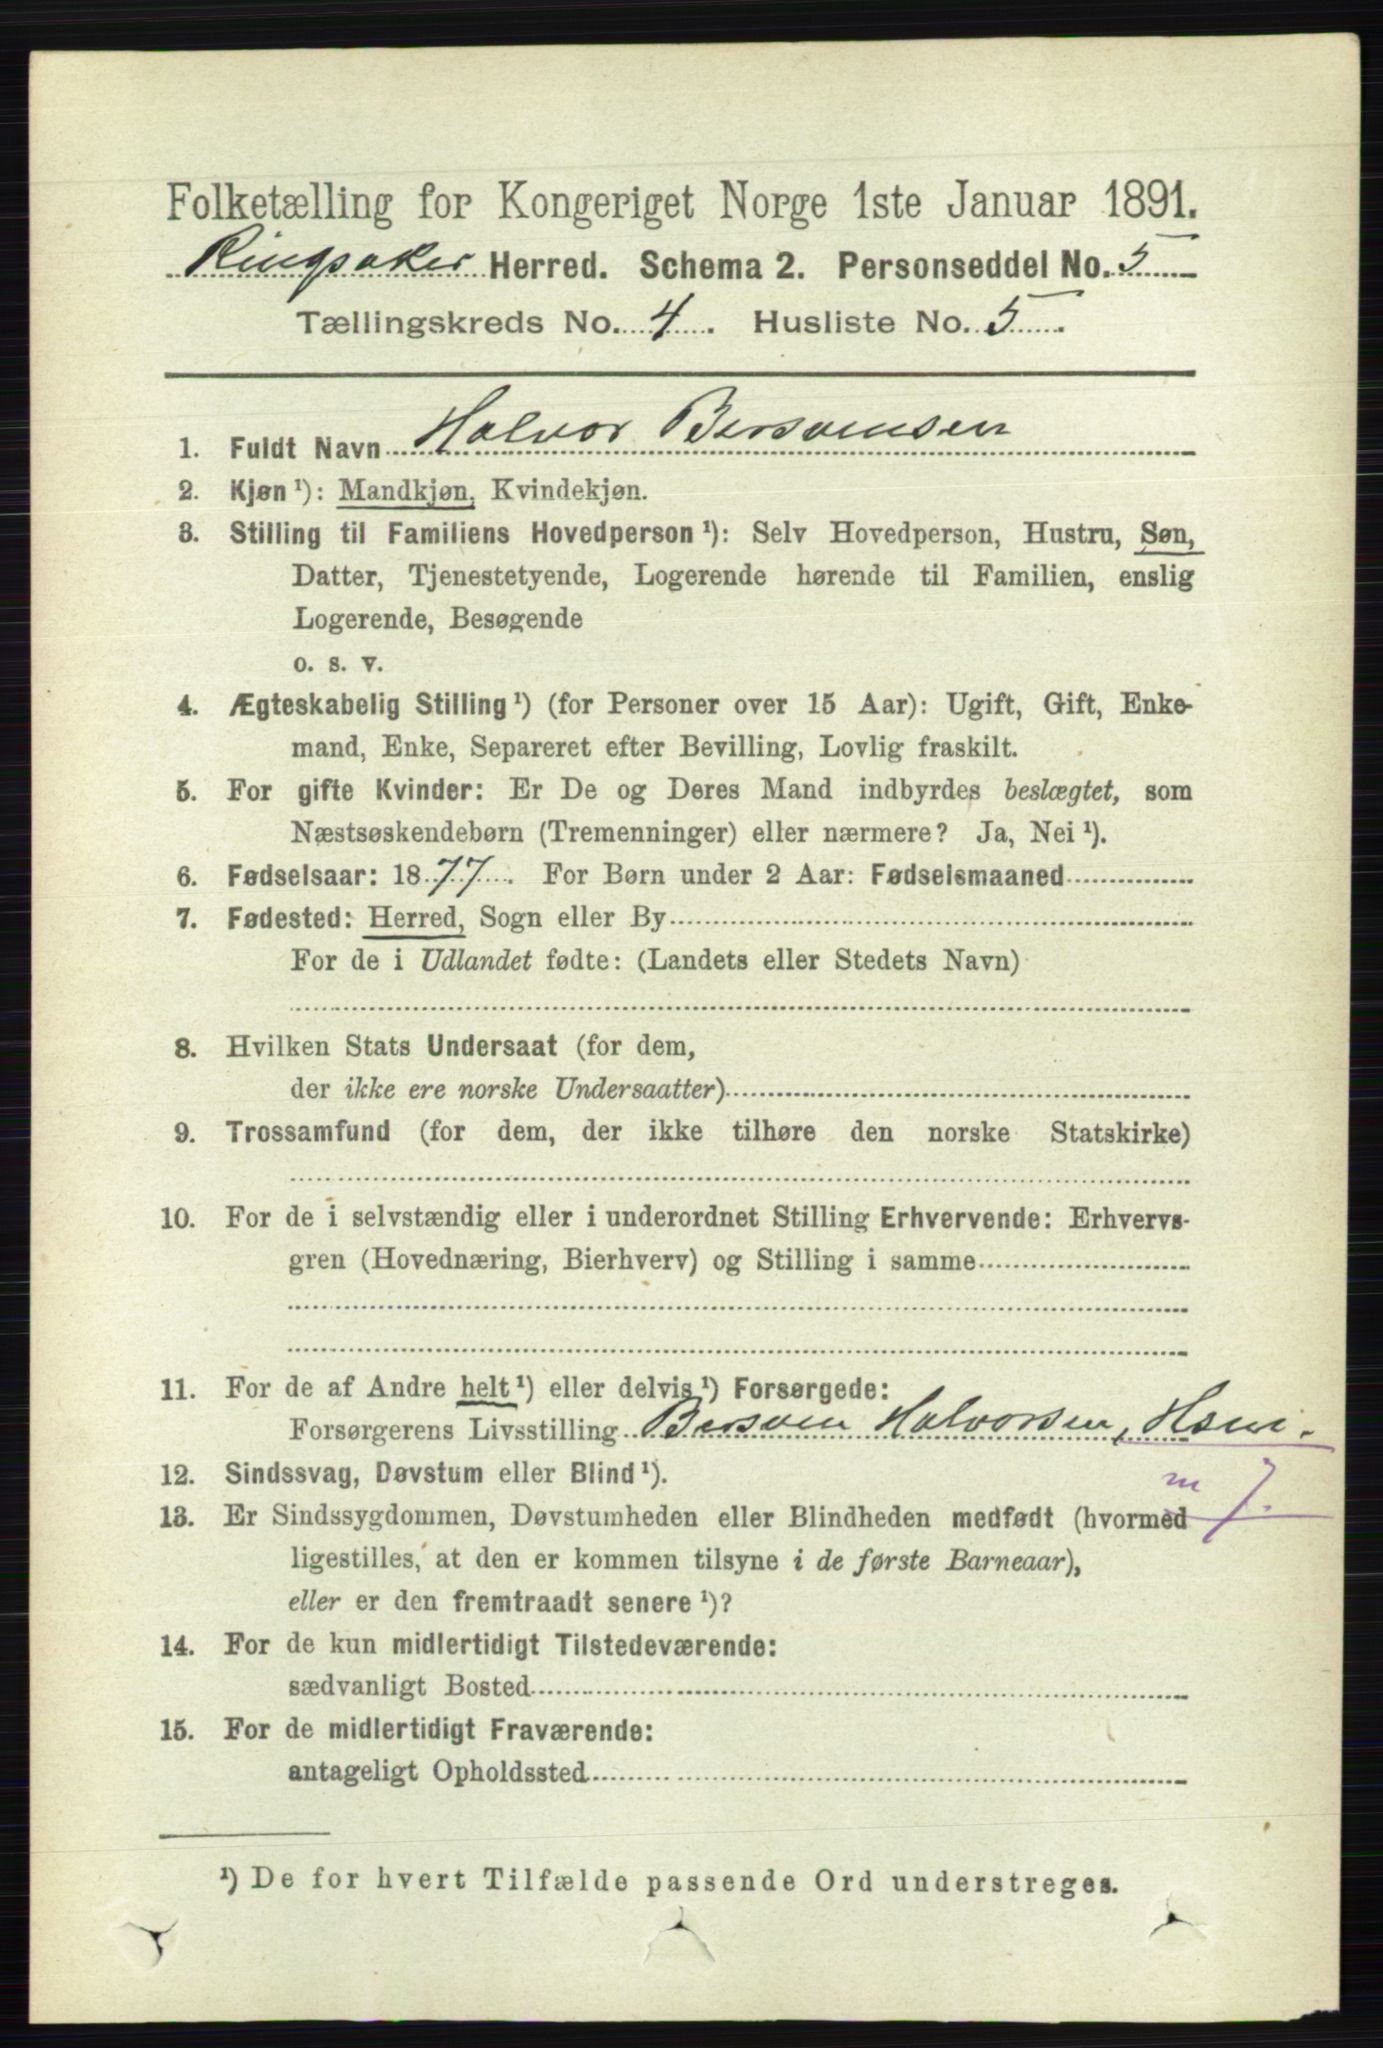 Folketælling for Kongeriget Norge 1ste Januar 1891.
Ringsaker Herred. Schema 2. Personseddel No. 5
Tællingskreds No. 4. Husliste No. 5.
1. Fuldt Navn Halvor Bersvensen
2. Kjøn ¹): Mandkjøn, Kvindekjøn.
3. Stilling til Familiens Hovedperson ¹): Selv Hovedperson, Hustru, Søn,
Datter, Tjenestetyende, Logerende hørende til Familien, enslig
Logerende, Besøgende
o. s. v.
4. Ægteskabelig Stilling ¹) (for Personer over 15 Aar): Ugift, Gift, Enke-
mand, Enke, Separeret efter Bevilling, Lovlig fraskilt.
5. For gifte Kvinder: Er De og Deres Mand indbyrdes beslægtet, som
Næstsøskendebørn (Tremenninger) eller nærmere? Ja, Nei ¹).
6. Fødselsaar: 1877. For Børn under 2 Aar: Fødselsmaaned
7. Fødested: Herred, Sogn eller By
For de i Udlandet fødte: (Landets eller Stedets Navn)
8. Hvilken Stats Undersaat (for dem,
der ikke ere norske Undersaatter)
9. Trossamfund (for dem, der ikke tilhøre den norske Statskirke)
10. For de i selvstændig eller i underordnet Stilling Erhvervende: Erhvervs-
gren (Hovednæring, Bierhverv) og Stilling i samme
11. For de af Andre helt ¹) eller delvis ¹) Forsørgede:
Forsørgerens Livsstilling Bersven Halvorsen, Hsm.
12. Sindssvag, Døvstum eller Blind ¹).
m 7.
13. Er Sindssygdommen, Døvstumheden eller Blindheden medfødt (hvormed
ligestilles, at den er kommen tilsyne i de første Barneaar),
eller er den fremtraadt senere ¹)?
14. For de kun midlertidigt Tilstedeværende:
sædvanligt Bosted
15. For de midlertidigt Fraværende:
antageligt Opholdssted
¹) De for hvert Tilfælde passende Ord understreges.